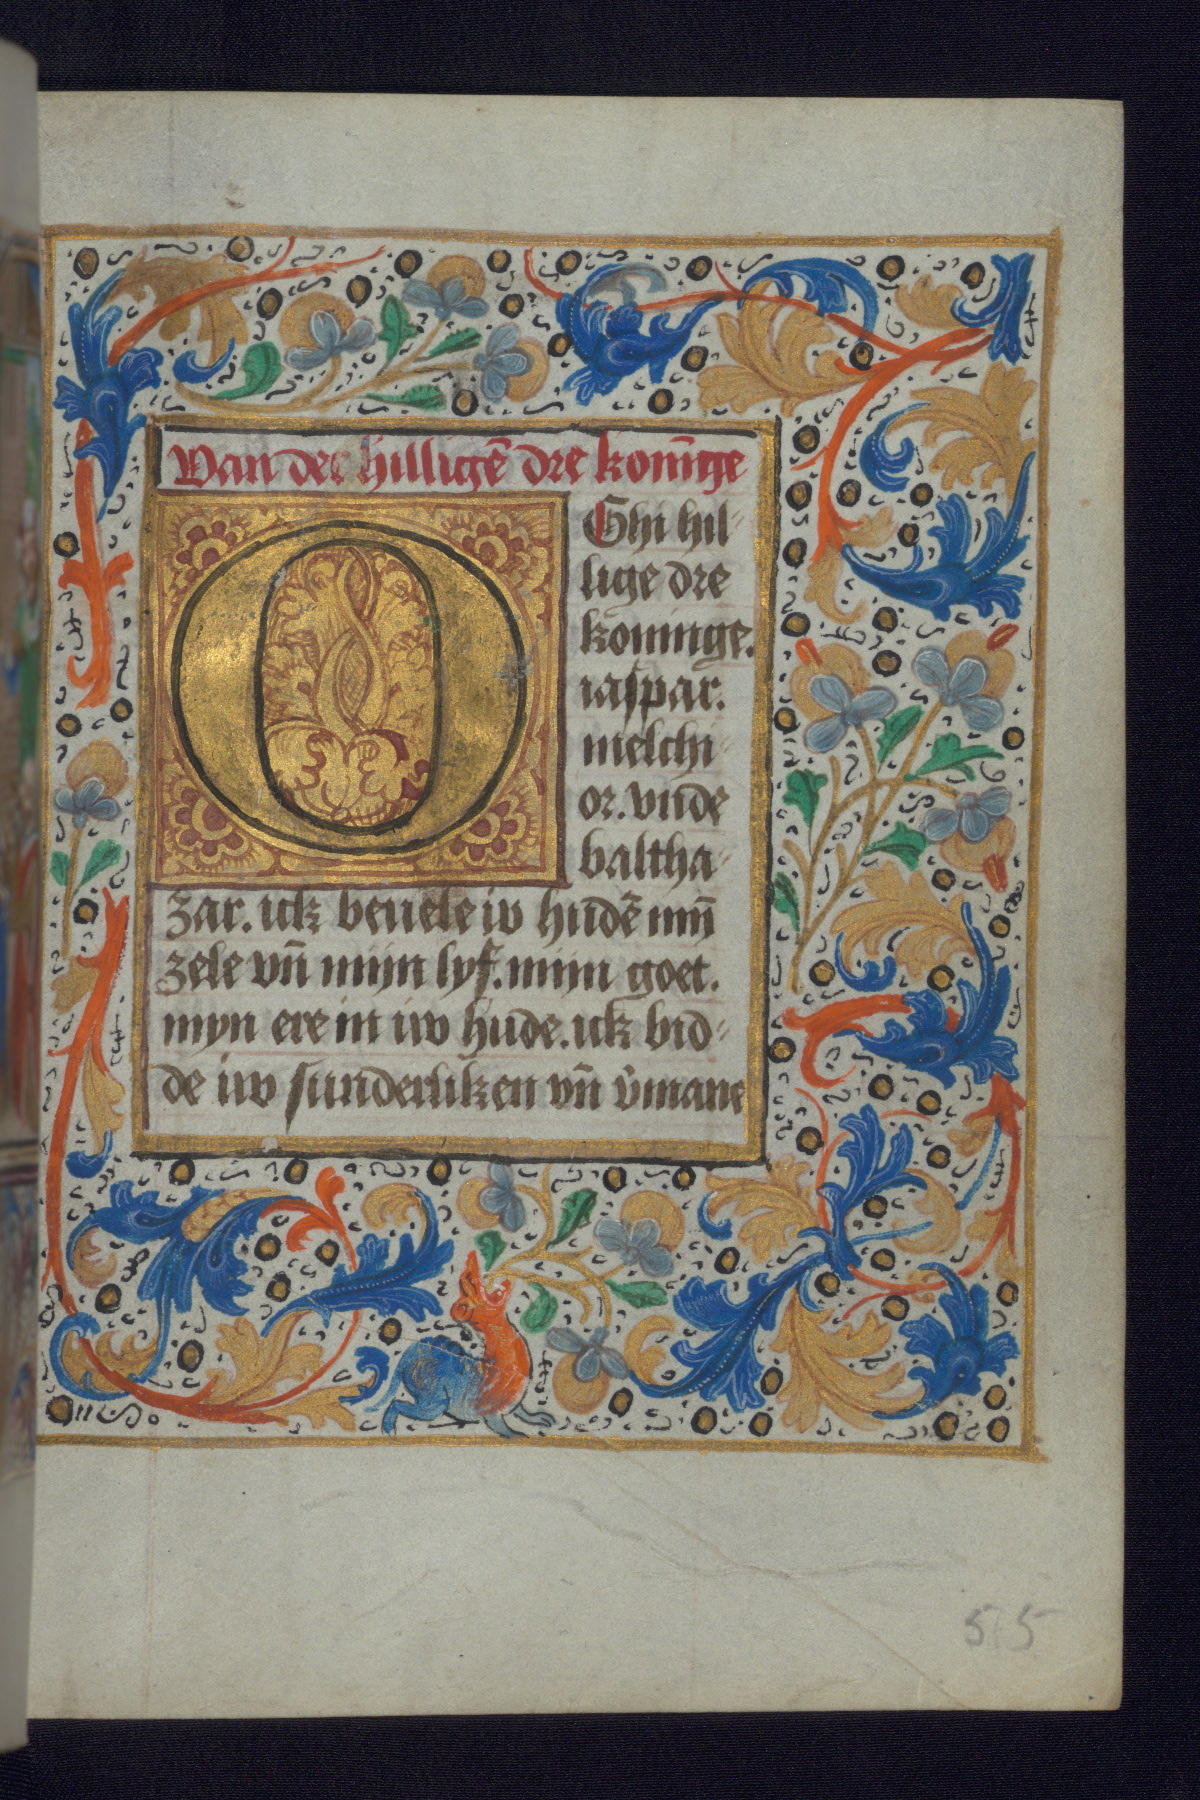 Van dē hilligē dre konīge
O Ghi hil-
lige dre
koninge.
iaspar.
melchi-
or. vnde
baltha-
zar. ick beuele iv hudē mỹ
zele vn̄ mijn lyf. mijn goet.
myn ere in iw hude. ick bid-
de iw sunderliken vn̄ v̄mane
55